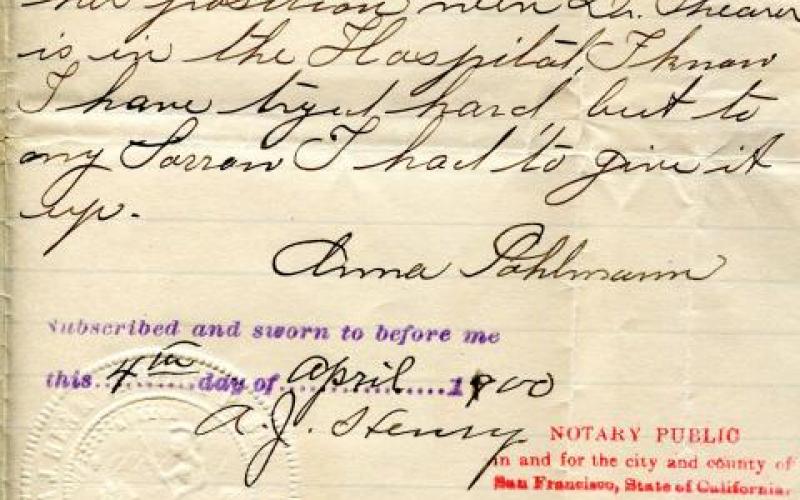 her position when Dr. Shearer
is in the Hospital, I know
I have tryed hard, but to
my Sorrow I had to give it
up.
Anna Pohlmann
Subscribed and sworn to before me
this 4th day of April 1900
A. J. Henry
NOTARY PUBLIC
in and for the city and county of
San Francisco, State of California.